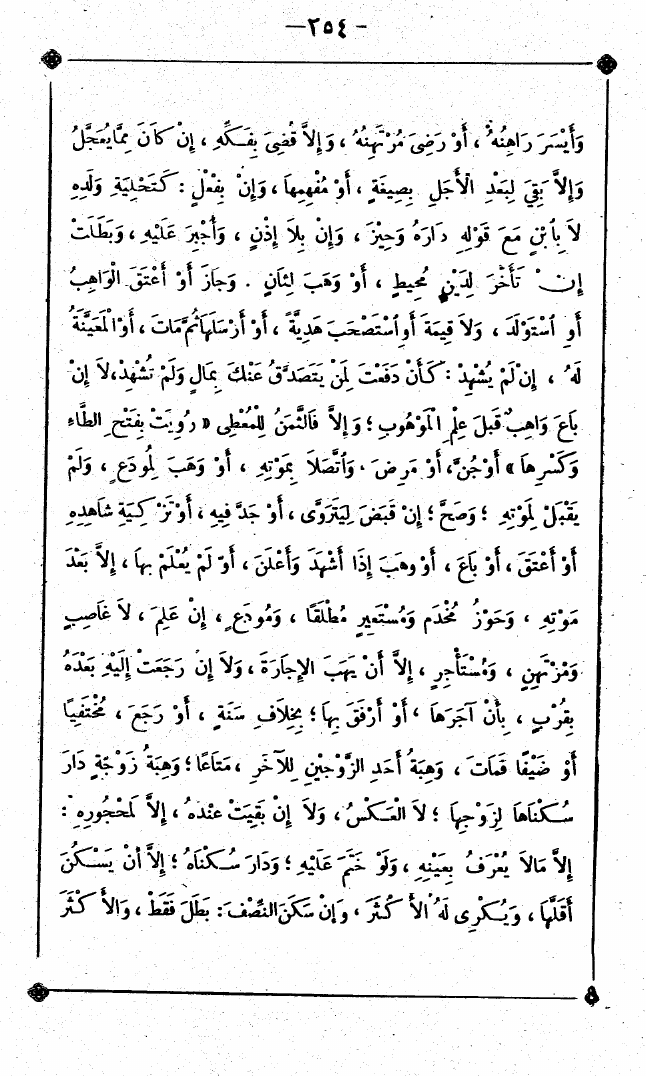 — ٢٥٤ —
وَأَيْسَرَ رَاهِنُهُ ، أَوْ رَضِىَ مُرْتَهِنُهُ ، وَإِلاَّ قُضِىَ بِفَكِّهِ ، إِنْ كَانَ مِمَّا يُعَجَّلُ
وَإِلاَّ بَقِىَ لِبَعْدِ الْأَجَلِ بِصِيغَةٍ ، أَوْ مُفْهِمِهَا ، وَإِنْ بِفِعْلٍ : كَتَحْلِيَةِ وَلَدِهِ
لاَ بِابْنِ مَعَ قَوْلِهِ دَارَهُ وَحِيزَ ، وَإِنْ بِلاَ إِذْنٍ ، وَأُجْبِرَ عَلَيْهِ ، وَبَطَلَتْ
إِنْ تَأَخَّرَ لِدَيْنٍ مُحِيطٍ ، أَوْ وَهَبَ لِثَانٍ . وَحَازَ أَوْ أَعْتَقَ الْوَاهِبُ
أَوِ اسْتَوْلَدَ ، وَلاَ قِيمَةَ أَوِ اسْتَصْحَبَ هَدِيَّةً ، أَوْ أَرْسَلَهَا ثُمَّ مَاتَ ، أَوْ الْمُعَيَّنَةُ
لَهُ ، إِنْ لَمْ يُشْهِدْ : كَأَنْ دَفَعْتَ لِمَنْ يَتَصَدَّقُ عَنْكَ بِمَالٍ وَلَمْ تُشْهِدْ ، لاَ إِنْ
بَاعَ وَاهِبٌ قَبْلَ عِلْمِ الْمَوْهُوبِ ؛ وَإِلاَّ فَالثَّمَنُ لِلْمُعْطِى « رُوِيَتْ بِفَتْحِ الطَّاءِ
وَكَسْرِهَا » أَوْ جُنَّ ، أَوْ مَرِضَ . وَاتَّصَلاَ بِمَوْتِهِ ، أَوْ وَهَبَ لِمُودَعٍ ، وَلَمْ
يَقْبَلْ لِمَوْتِهِ ؛ وَصَحَّ ؛ إِنْ قَبَضَ لِيَتَرَوَّى ، أَوْ جَدَّ فِيهِ ، أَوْ تَزْكِيَةِ شَاهِدِهِ
أَوْ أَعْتَقَ ، أَوْ بَاعَ ، أَوْ وَهَبَ إِذَا أَشْهَدَ وَأَعْلَنَ ، أَوْ لَمْ يُعْلَمْ بِهَا ، إِلاَّ بَعْدَ
مَوْتِهِ ، وَحَوْزُ مُخْدَمٍ وَمُسْتَعِيرٍ مُطْلَقًا ، وَمُودَعٍ ، إِنْ عَلِمَ ، لاَ غَاصِبٍ
وَمُرْتَهِنٍ ، وَمُسْتَأْجِرٍ ، إِلاَّ أَنْ يَهَبَ الْإِجَارَةَ ، وَلاَ إِنْ رَجَعَتْ إِلَيْهِ بَعْدَهُ
بِقُرْبٍ ، بِأَنْ آجَرَهَا ، أَوْ أَرْفَقَ بِهَا ؛ بِخِلاَفِ سَنَةٍ ، أَوْ رَجَعَ ، مُخْتَفِيًا
أَوْ ضَيْفًا فَمَاتَ ، وَهِبَةُ أَحَدِ الزَّوْجَيْنِ لِلآخَرِ ، مَتَاعًا ؛ وَهِبَةُ زَوْجَةٍ دَارَ
سُكْنَاهَا لِزَوْجِهَا ؛ لاَ الْعَكْسُ ، وَلاَ إِنْ بَقِيَتْ عِنْدَهُ ، إِلاَّ لِمَحْجُورِهِ :
إِلاَّ مَالاَ يُعْرَفُ بِعَيْنِهِ ، وَلَوْ خَتَمَ عَلَيْهِ ؛ وَدَارَ سُكْنَاهُ ؛ إِلاَّ أَنْ يَسْكُنَ
أَقَلَّهَا ، وَيُكْرِى لَهُ الْأَكْثَرَ ، وَإِنْ سَكَنَ النِّصْفَ : بَطَلَ فَقَطْ ، وَالْأَكْثَرَ